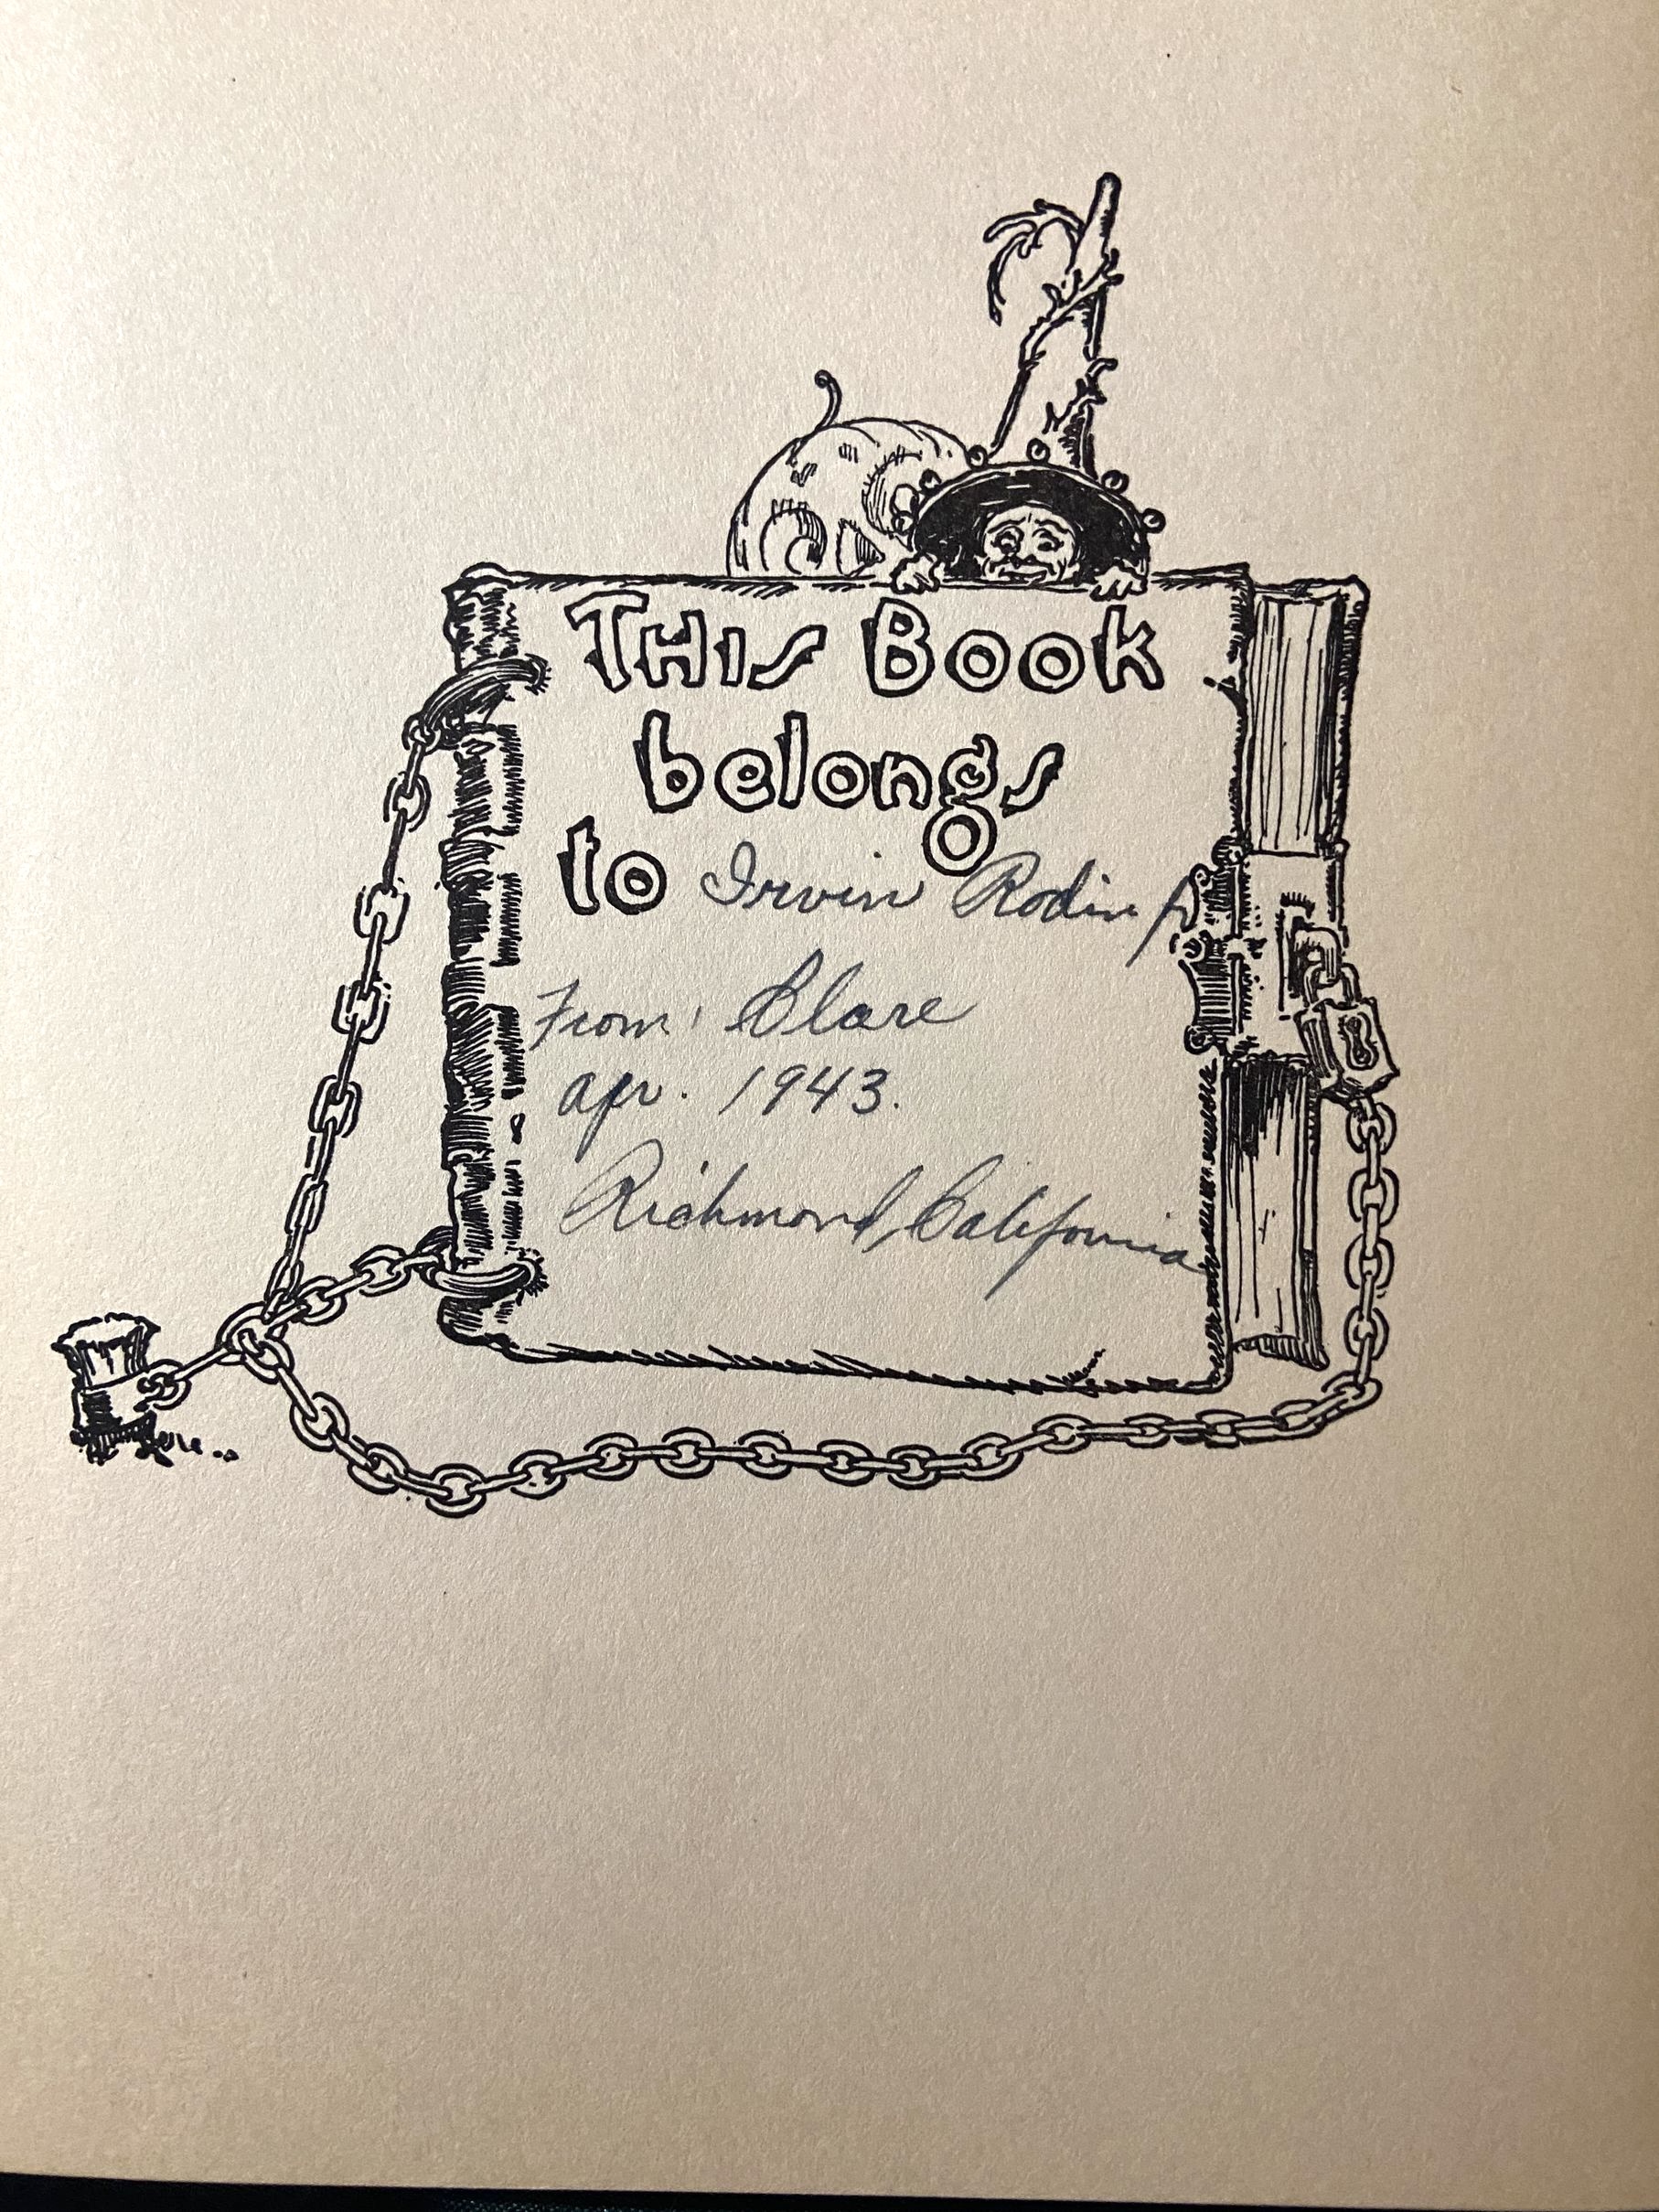 THIS Book
belongs
to Irvin Rodin
From: Clare
apr. 1943.
Richmond, California